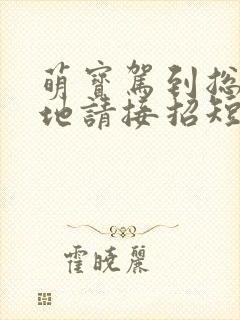 萌寶駕到總
地請接招短
霍曉麗